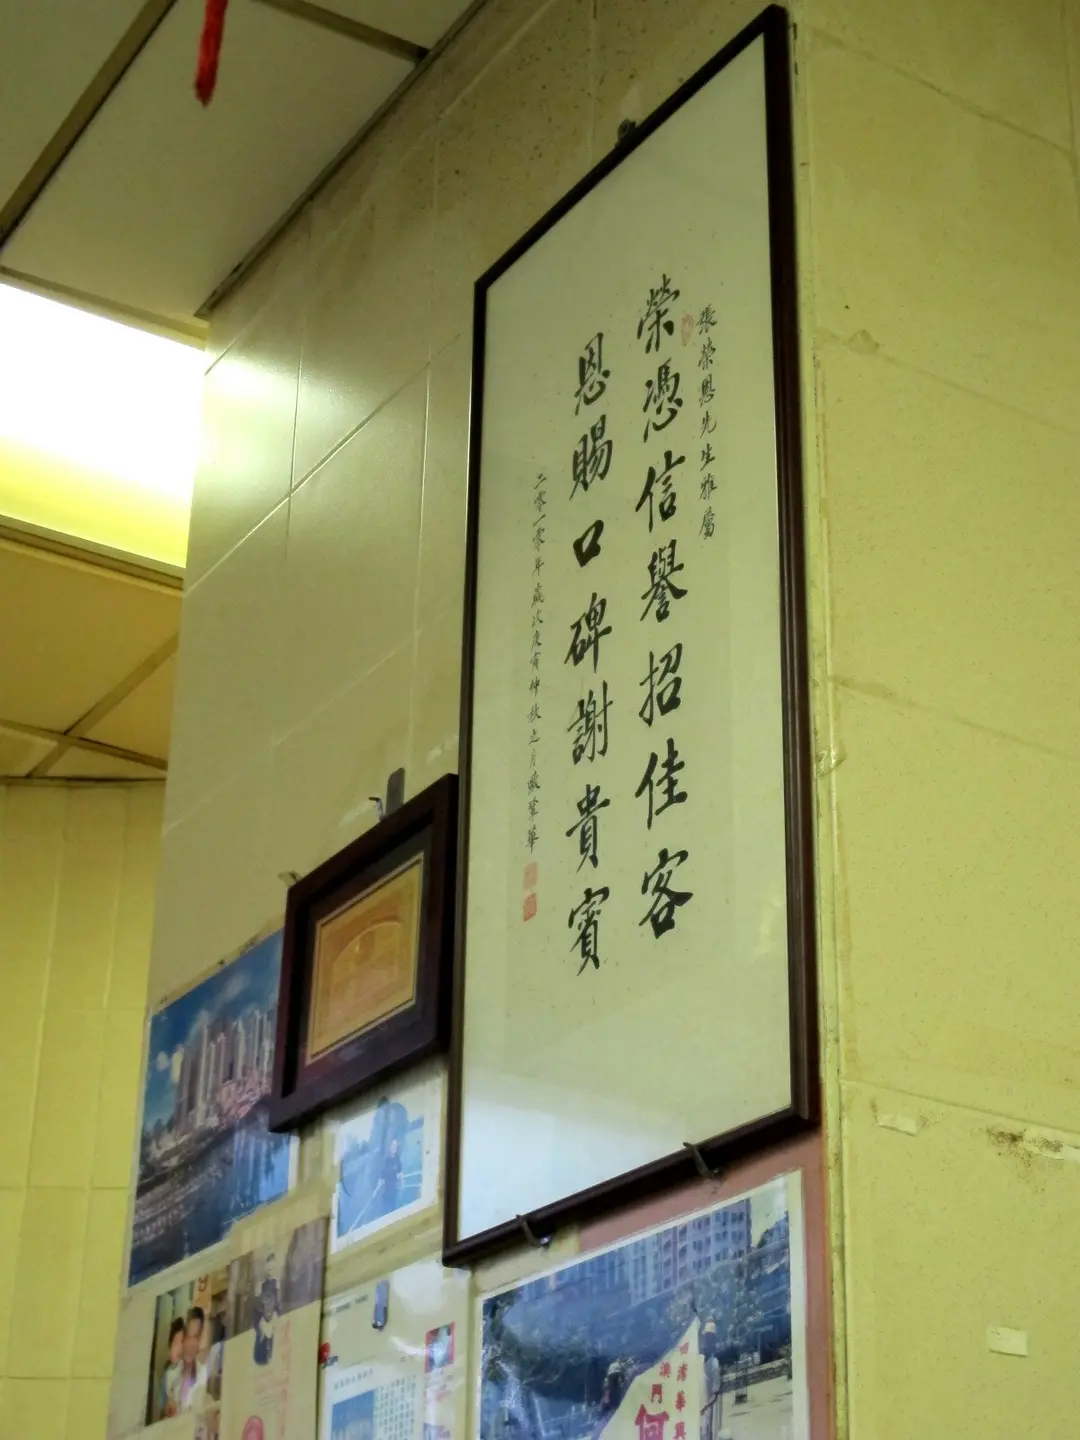 張榮恩先生雅屬
榮憑信譽招佳客
恩賜口碑謝貴賓
二零一零年歲次庚寅仲秋之月
澳門
何